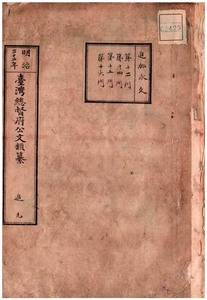 追加永久
第十二門
第十四門
第十五門
第十六門
明治
臺灣總督府公文類纂